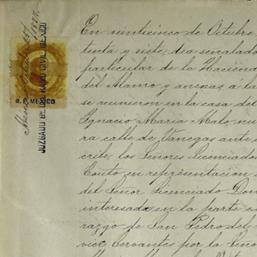 En veinticinco de Octubre
tenta y siete, dia señalado
particular de la Hacienda
del Alamo y anexas a la
se reunieron en la casa del
Ignacio Maria Malo nu
ra calle de Vanegas ante
cribe, los Señores Licenciados
Couto en representacion
del Señor Licenciado Don
interesada en la parte
razgo de San Pedro del
vier Cervantes por la Seño
R. P. MEXICO
JUZGADO